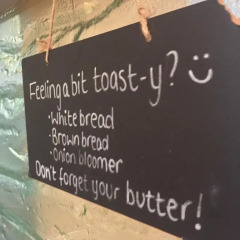 Feeling a bit toast-y? :)
• White bread
• Brown bread
• Onion bloomer
Don't forget your butter!